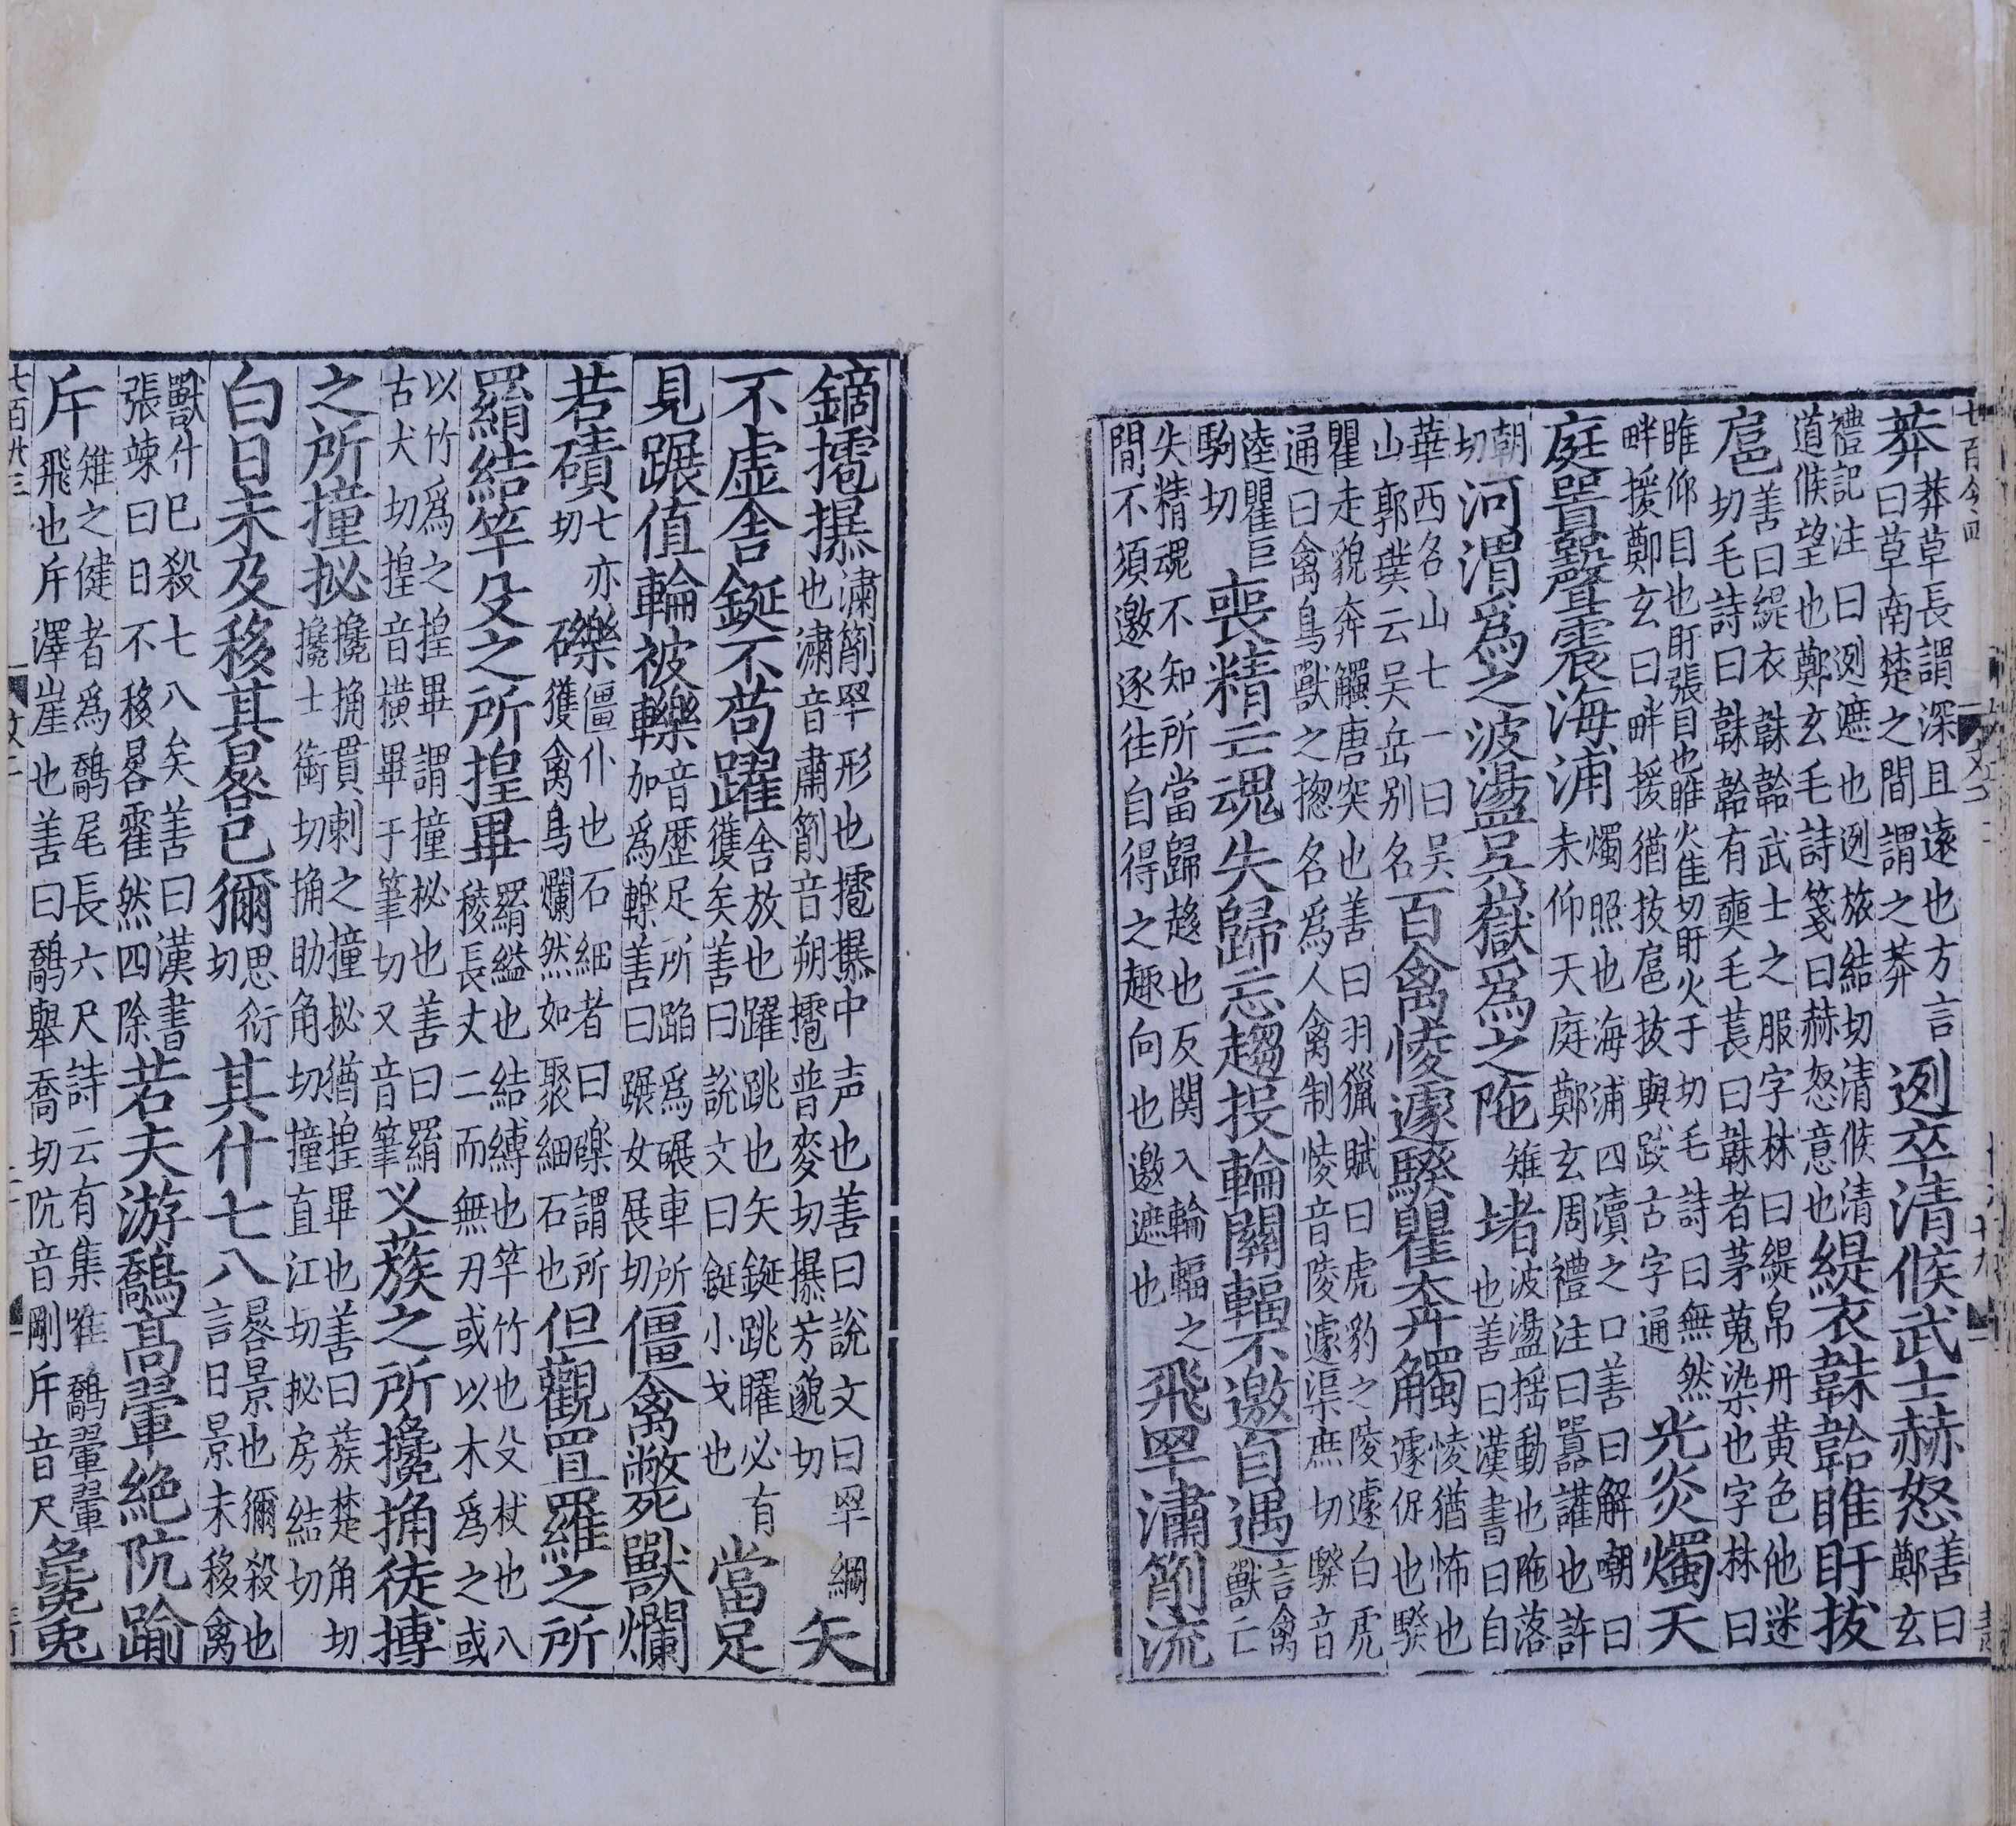 莽莽草長謂深且遠也方言
曰草南楚之間謂之莽迾卒清候武士赫怒善曰鄭玄
禮記注曰迾遮也迾旅結切清候清
道候望也鄭玄毛詩箋曰赫怒意也緹衣韎韐睢盱拔
扈善曰緹衣韎韐武士之服字林曰緹帛丹黃色他迷
切毛詩曰韎韐有奭毛萇曰韎者茅蒐染也字林曰
睢仰目也盱張目也睢火隹切盱火于切毛詩曰無然
畔援鄭玄曰畔援猶拔扈拔與跋古字通光炎燭天
庭嚻聲震海浦燭照也海浦四瀆之口善曰解嘲曰
未仰天庭鄭玄周禮注曰嚻讙也許
朝切河渭為之波盪吳嶽為之陁雉堵波盪揺動也陁落
也善曰漢書曰自
華西名山七一曰吳
山郭璞云吳岳别名百禽㥄遽騤瞿奔觸㥄猶怖也
遽促也騤
瞿走貌奔觸唐突也善曰羽獵賦曰虎豹之陵遽白虎
通曰禽鳥獸之揔名為人禽制㥄音陵遽渠庶切騤音
逵瞿巨
駒切喪精亡魂失歸忘趨投輪關輻不邀自遇言禽
獸亡
失精魂不知所當歸趍也反関入輪輻之
間不須邀逐往自得之趣向也邀遮也飛罕潚箾流
鏑㩧㩧潚箾罕形也㩧㩧中声也善曰說文曰罕網
也潚音肅箾音朔㩧普麥切㩧芳邈切矢
不虛舍鋋不苟躍舍放也躍跳也矢鋋跳躍必有
獲矣善曰說文曰鋋小戈也當足
見蹍值輪被轢音歷足所蹈為碾車所
加為轢善曰蹍女展切僵禽斃獸爛
若磧七亦
切礫僵仆也石細者曰礫謂所
獲禽鳥爛然如聚細石也但觀罝羅之所
羂結竿殳之所揘畢羂縊也結縛也竿竹也殳杖也八
稜長丈二而無刃或以木為之或
以竹為之揘畢謂撞柲也善曰羂
古犬切揘音橫畢于筆切又音筆义蔟之所攙捔徒搏
之所撞㧙攙捔貫刺之撞㧙猶揘畢也善曰蔟楚角切
攙士衘切捔助角切撞直江切㧙房結切
白日未及移其晷已獮思衍
切其什七八晷景也獮殺也
言日景未移禽
獸什已殺七八矣善曰漢書
張竦曰日不移晷霍然四除若夫游鷮高翬絶阬踰
斥雉之健者為鷮尾長六尺詩云有集唯鷮翬翬
飛也斥斥澤崖也善曰鷮舉喬切阬音剛斥音尺毚兔